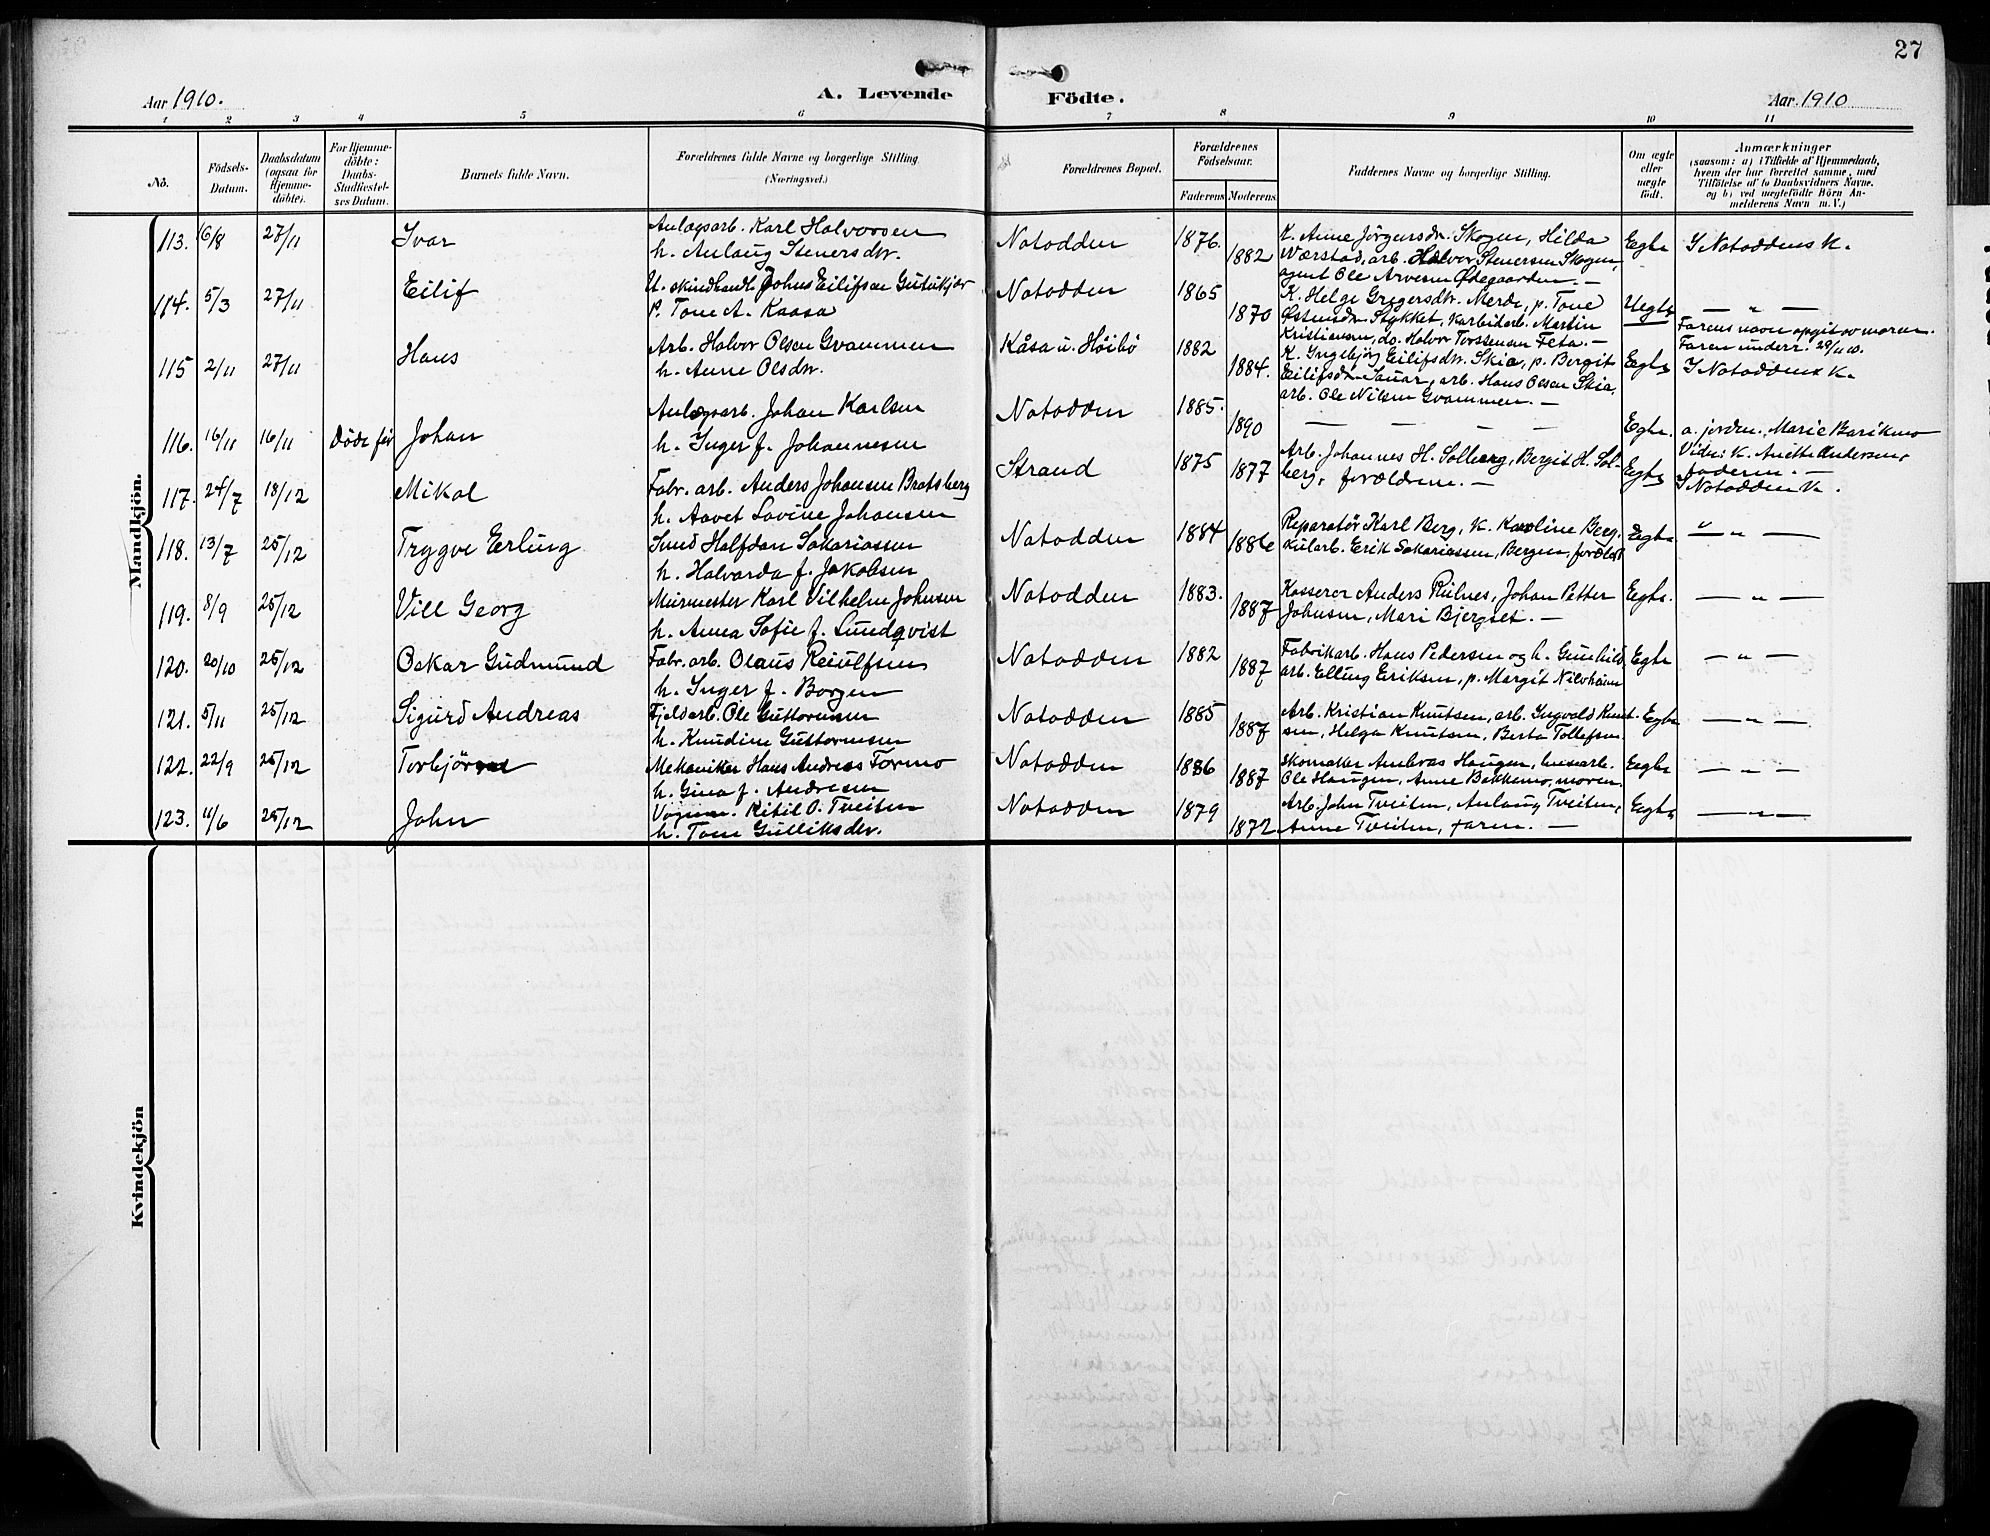 27
Aar 1910.
A. Levende Födte.
Aar 1910
1 2 3 4 5 6 7 8 9 10 11
No.
Födsels-
Datum.
Daabsdatum
(ogsaa for
Hjemme-
döbte).
For Hjemme-
döbte:
Daabs-
Stadfæstel-
ses Datum.
Barnets fulde Navn.
Forældrenes fulde Navne og borgerlige Stilling.
(Næringsvei.)
Forældrenes Bopæl.
Forældrenes
Födselsaar.
Faderens Moderens
Faddernes Navne og borgerlige Stilling.
Om ægte
eller
uægte
født.
Anmærkninger
(saasom: a) i Tilfælde af Hjemmedaab,
hvem der har forrettet samme, med
Tilföielse af to Daabsvidners Navne,
og b) ved uægtefödte Börn An-
melderens Navn m. V.)
Mandkjön.
113. 16/8 27/11 Ivar
Anlægsarb. Karl Halvorsen
h. Anlaug Stenersdtr.
Notodden 1876. 1882
K. Anne Jörgensdtr. Skogen, Hilda
Værstad, arb. Halvor Stenersen Skogen,
agent Ole Arvesen Ødegaarden. —
Egte I Notoddens K.
114. 5/3 27/11 Eilif
U. skindhandl. Johns Eilifsen
P. Tone A. Kaasa
Notodden 1865 1870
K. Helge Gregersdtr. Merde, p. Tone
Østensdtr. Stykket, karbidarb. Martin
Kristiansen, do. Halvor Torstensen Feta. —
Uegte — " —
Farens navn opgit av moren.
Faren underr. 29/11 10.
115 2/11 27/11 Hans
Arb. Halvor Olsen Gvammen
h. Anne Olsdtr.
Kåsa u. Höibö 1882 1884.
K. Ingebjörg Eilifsdtr. Skie, p. Bergit
Eilifsdtr. Sauar, arb. Hans Olsen Skie,
arb. Ole Nilsen Gvammen. —
Egte I Notoddens K.
116. 16/11 16/11 Döde för Johan
Anlægsarb. Johan Karlsen
h. Inger f. Johannesen
Notodden 1885. 1890
— — — — —
Egte. a. jordm. Marie Barikmo
Vidn: K. Anette Andersen,
faderen. —
117. 24/7 18/12 Mikal
Fabr. arb. Anders Johansen Bratsberg
h. Aavet Lovine Johansen
Strand 1875 1877
Arb. Johannes H. Solberg, Bergit H. Sol-
berg, forældrene. —
Egte I Notodden K.
118. 13/7 25/12 Trygve Erling
Smed Halfdan Sakariassen
h. Halvarda f. Jakobsen
Notodden 1884 1886
Reparatör Karl Berg, K. Karoline Berg,
kularb. Erik Sakariassen, Bergen, foræld.
Egte — " —
119. 8/9 25/12 Vill Georg
Murmester Karl Vilhelm Johnsen
h. Anna Sofie f. Lundqvist
Notodden 1883. 1887
Kasserer Anders Rulnes, Johan Petter
Johnsen, Mari Bjerget. —
Egte. — " —
120. 20/10 25/12 Oskar Gudmund
Fabr. arb. Olaus Reiulfsen
h. Inger f. Borgen
Notodden 1882 1887
Fabrikarb. Hans Pedersen og h. Gunhild,
arb. Elling Eriksen, p. Margit Nilsheim
Egte — " —
121. 5/11 25/12 Sigurd Andreas
Fjeldarb. Ole Guttormsen
h. Knudine Guttormsen
Notodden 1885 1887
Arb. Kristian Knutsen, arb. Ingvald Knut-
sen, Helga Knutsen, Berta Tollefsen
Egte — " —
122. 22/9 25/12 Torbjörn
Mekaniker Hans Andreas Formo
h. Gina f. Andresen
Notodden 1886 1887
Skomaker Ambros Haugen,
Ole Haugen, Anne Bakkemo, moren
Egte — " —
123. 11/6 25/12 John
Kitil O. Tveiten
h. Tone Gulliksdtr.
Notodden 1879 1872
Arb. John Tveiten, Anlaug Tveiten,
Anne Tveiten, faren. —
Egte — " —
Kvindekjön